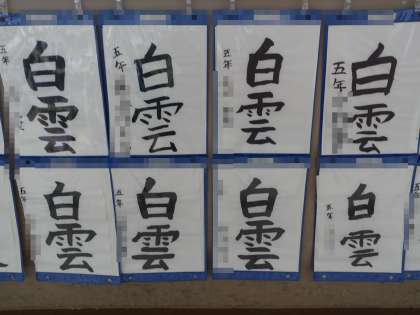 白雲
五年
白雲
五年
白雲
五年
白雲
五年
白雲
五年
白雲
五年
白雲
五年
白雲
五年